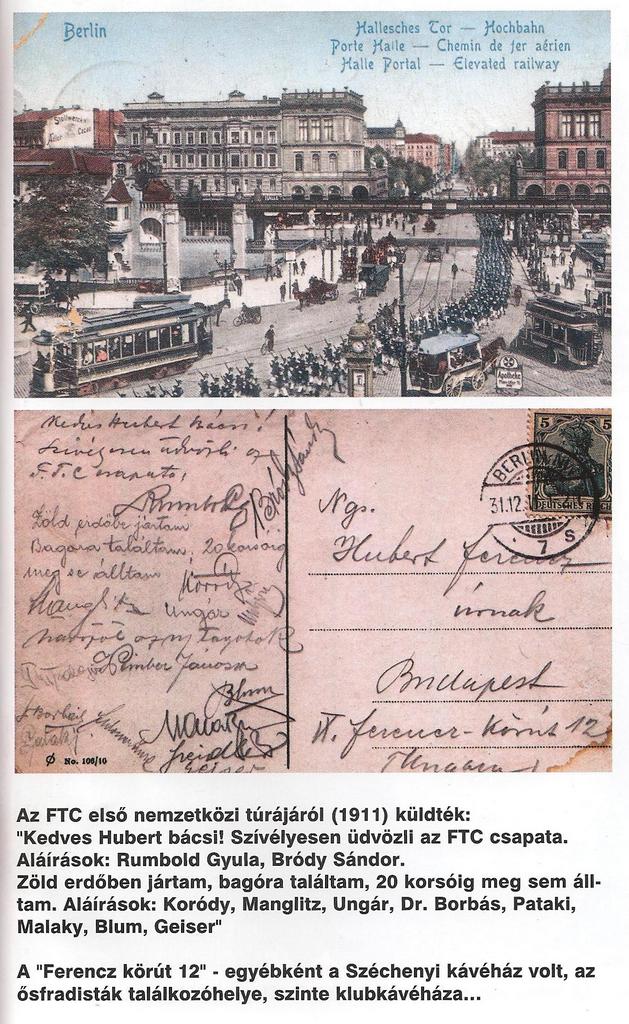 Berlin
Hallesches Tor — Hochbahn
Porte Halle — Chemin de fer aérien
Halle Portal — Elevated railway
Stollwerck
Cacao
Apotheke
Kedves Hubert bácsi!
Szivélyesen üdvözli az
F.T.C csapata,
Rumbold
Bródy Sándor
Zöld erdőbe jártam
Bagóra találtam, 20 korsóig
meg se álltam
Ungár
Pimber János
Blum
Pataki
No. 106/16
5 5
DEUTSCHES REICH
BERLIN
31.12
7 S
Ngs.
Hubert Ferencz
úrnak
Budapest
IX. Ferencz-Körút 12
Ungarn
Az FTC első nemzetközi túrájáról (1911) küldték:
"Kedves Hubert bácsi! Szívélyesen üdvözli az FTC csapata.
Aláírások: Rumbold Gyula, Bródy Sándor.
Zöld erdőben jártam, bagóra találtam, 20 korsóig meg sem áll-
tam. Aláírások: Koródy, Manglitz, Ungár, Dr. Borbás, Pataki,
Malaky, Blum, Geiser"
A "Ferencz körút 12" - egyébként a Széchenyi kávéház volt, az
ősfradisták találkozóhelye, szinte klubkávéháza...